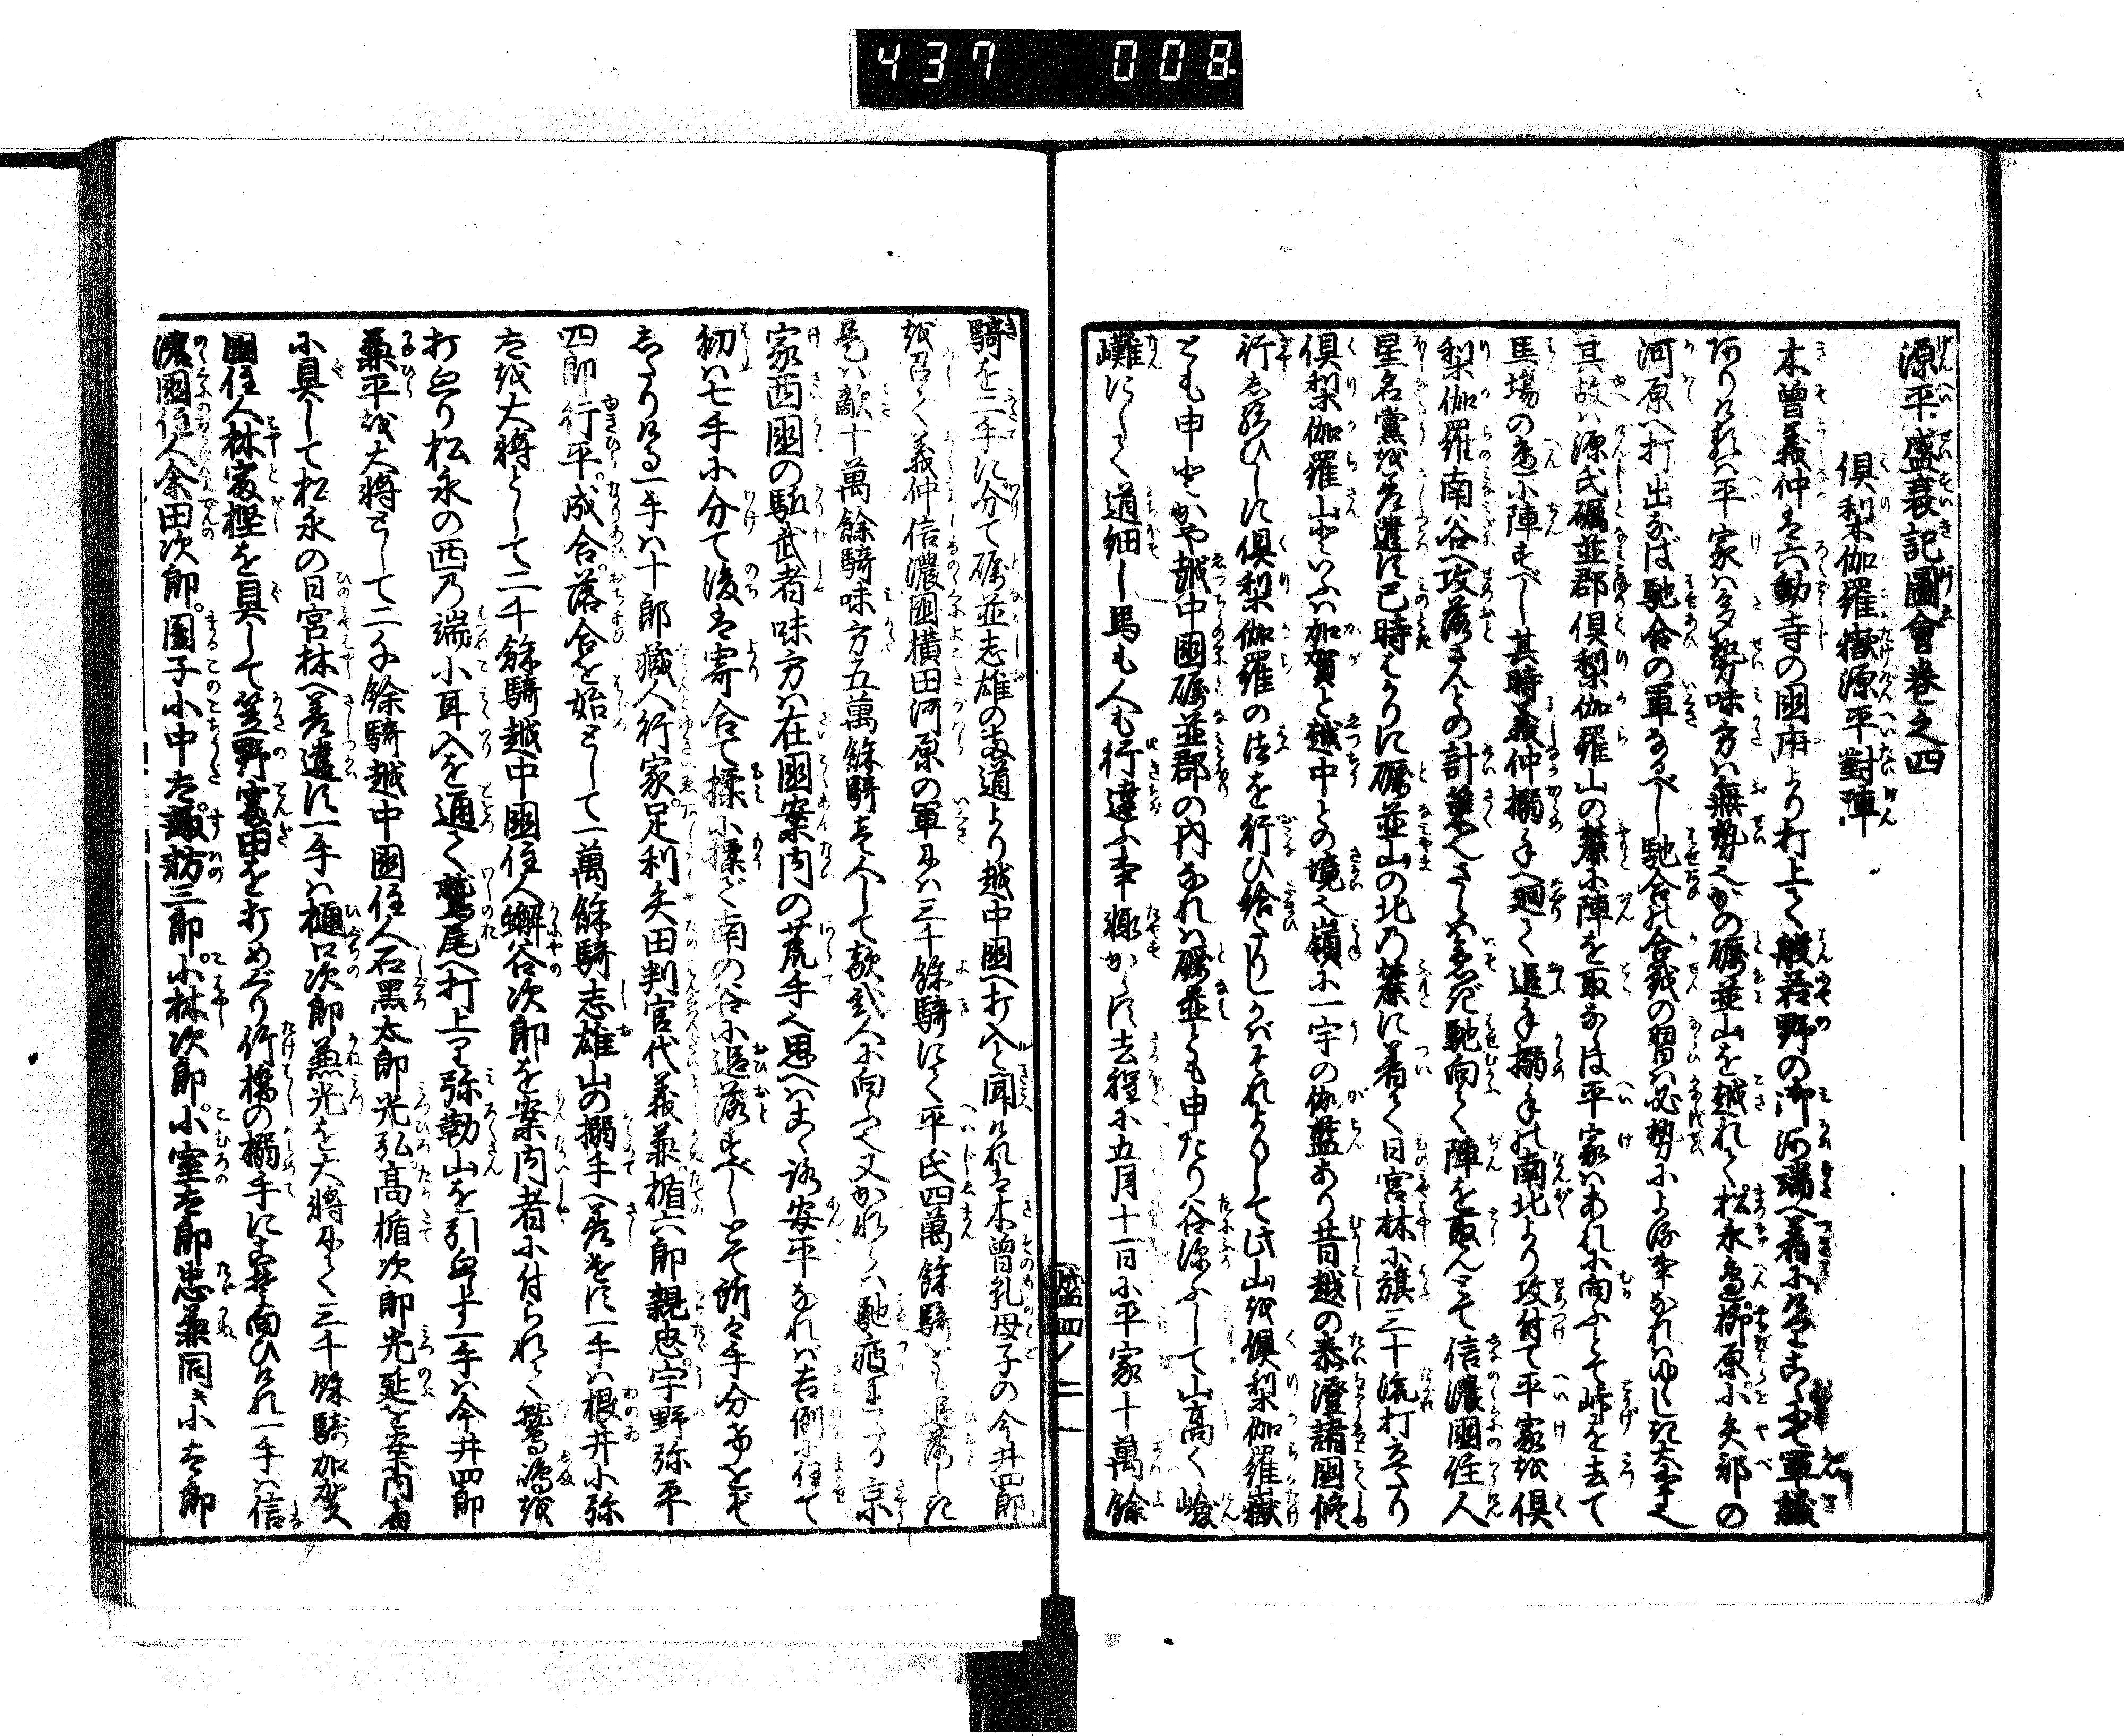 437 008.
源平盛衰記圖會巻之四
倶梨伽羅嶽源平對陣
木曽義仲は六動寺の國府より打上て般若野の御河端へ着にける軍議
ありけるは平家は多勢味方は無勢也かの礪並山を越れて松永邉柳原小矢部の
河原へ打出なば馳合の軍なるべし馳合の合戦の習ひ必勢による事なればゆゝしき大事也
其故は源氏礪並郡倶梨伽羅山の麓に陣を取なば平家はあれに向ふとて峠を去て
馬場の邉に陣すべし其時義仲搦手へ廻て追手搦手の南北より攻付て平家を倶
梨伽羅南谷へ攻落さんとの計策也さらば急ぎ馳向て陣を取んとて信濃國住人
星名黨を差遣に巳時ばかりに礪並山の北の麓に着て日宮林に旗三十流打立たり
倶梨伽羅山といふは加賀と越中との境也嶺に一宇の伽藍あり昔越の泰澄諸國修
行し給ひしに倶梨伽羅の法を行ひ給たりしかばそれよりして此山を倶梨伽羅嶽
とも申とかや越中國礪並郡の内なれは礪並とも申たり谷深ふして山高く嶮
難にして道細し馬も人も行違ふ事輙からず去程に五月十一日に平家十萬餘
騎を二手に分て礪並志雄の両道より越中國へ打入と聞けれは木曽乳母子の今井四郎
を召て義仲信濃國横田河原の軍には三千餘騎にて平氏四萬餘騎
是は敵十萬餘騎味方五萬餘騎也して敵弐人に向へ又かれらは馳疲たる京
家西國の駈武者味方は在國案内の荒手也思へばこゝ論安平なれば吉例に任て
初は七手に分て後は寄合て揉に揉で南の谷に追落すべしとて所々手分をぞ
したりける一手は十郎藏人行家足利矢田判官代義兼楯六郎親忠宇野弥平
四郎行平。成合。落合を始として一萬餘騎志雄山の搦手へ差遣はす一手は根井小弥
太を大将として二千餘騎越中國住人蠏谷次郎を案内者に付られて鷲嶋を
打廻り松永の西の端小耳入を通て鷲尾へ打上り弥勒山を引廻す一手は今井四郎
兼平を大将として二千餘騎越中國住人石黒太郎光弘髙楯次郎光延を案内者
に具して松永の日宮林へ差遣す一手は樋口次郎兼光を大将にて三千餘騎加賀
國住人林富樫を具して笠野冨田を打めぐり竹橋の搦手にこそ向ひけれ一手は信
濃國住人余田次郎。圓子小中太。諏訪三郎。小林次郎。小室太郎忠兼同き小太郎
盛四ノ二一